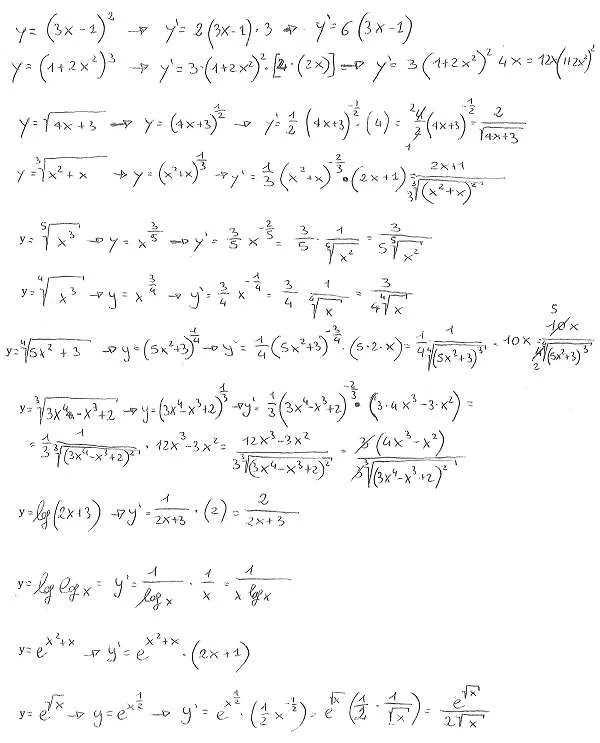 y = (3x-1)² → y' = 2(3x-1)·3 → y' = 6(3x-1)
y = (1+2x²)³ → y' = 3·(1+2x²)²·[2·(2x)] → y' = 3(1+2x²)² 4x = 12x(1+2x²)²
y = √(4x+3) → y = (4x+3)^(1/2) → y' = 1/2 (4x+3)^(-1/2)·(4) = 4/2 (4x+3)^(-1/2) = 2/√(4x+3)
y = ∛(x²+x) → y = (x²+x)^(1/3) → y' = 1/3 (x²+x)^(-2/3)·(2x+1) = (2x+1)/(3∛((x²+x)²))
y = ⁵√(x³) → y = x^(3/5) → y' = 3/5 x^(-2/5) = 3/5 · 1/⁵√(x²) = 3/(5 ⁵√(x²))
y = ⁴√(x³) → y = x^(3/4) → y' = 3/4 x^(-1/4) = 3/4 1/⁴√x = 3/(4 ⁴√x)
y = ⁴√(5x²+3) → y = (5x²+3)^(1/4) → y' = 1/4 (5x²+3)^(-3/4)·(5·2·x) = 1/4 1/⁴√((5x²+3)³) · 10x = 5 10x/(2 4 ⁴√((5x²+3)³))
y = ∛(3x⁴-x³+2) → y = (3x⁴-x³+2)^(1/3) → y' = 1/3 (3x⁴-x³+2)^(-2/3)·(3·4x³-3·x²) =
= 1/3 1/∛((3x⁴-x³+2)²) · 12x³-3x² = (12x³-3x²)/(3∛((3x⁴-x³+2)²)) = 3(4x³-x²)/(3∛((3x⁴-x³+2)²))
y = log(2x+3) → y' = 1/(2x+3) · (2) = 2/(2x+3)
y = log log x = y' = 1/(log x) · 1/x = 1/(x log x)
y = e^(x²+x) → y' = e^(x²+x)·(2x+1)
y = e^(√x) → y = e^(x^(1/2)) → y' = e^(x^(1/2))·(1/2 x^(-1/2)) = e^(√x) (1/2 · 1/√x) = e^(√x)/(2√x)